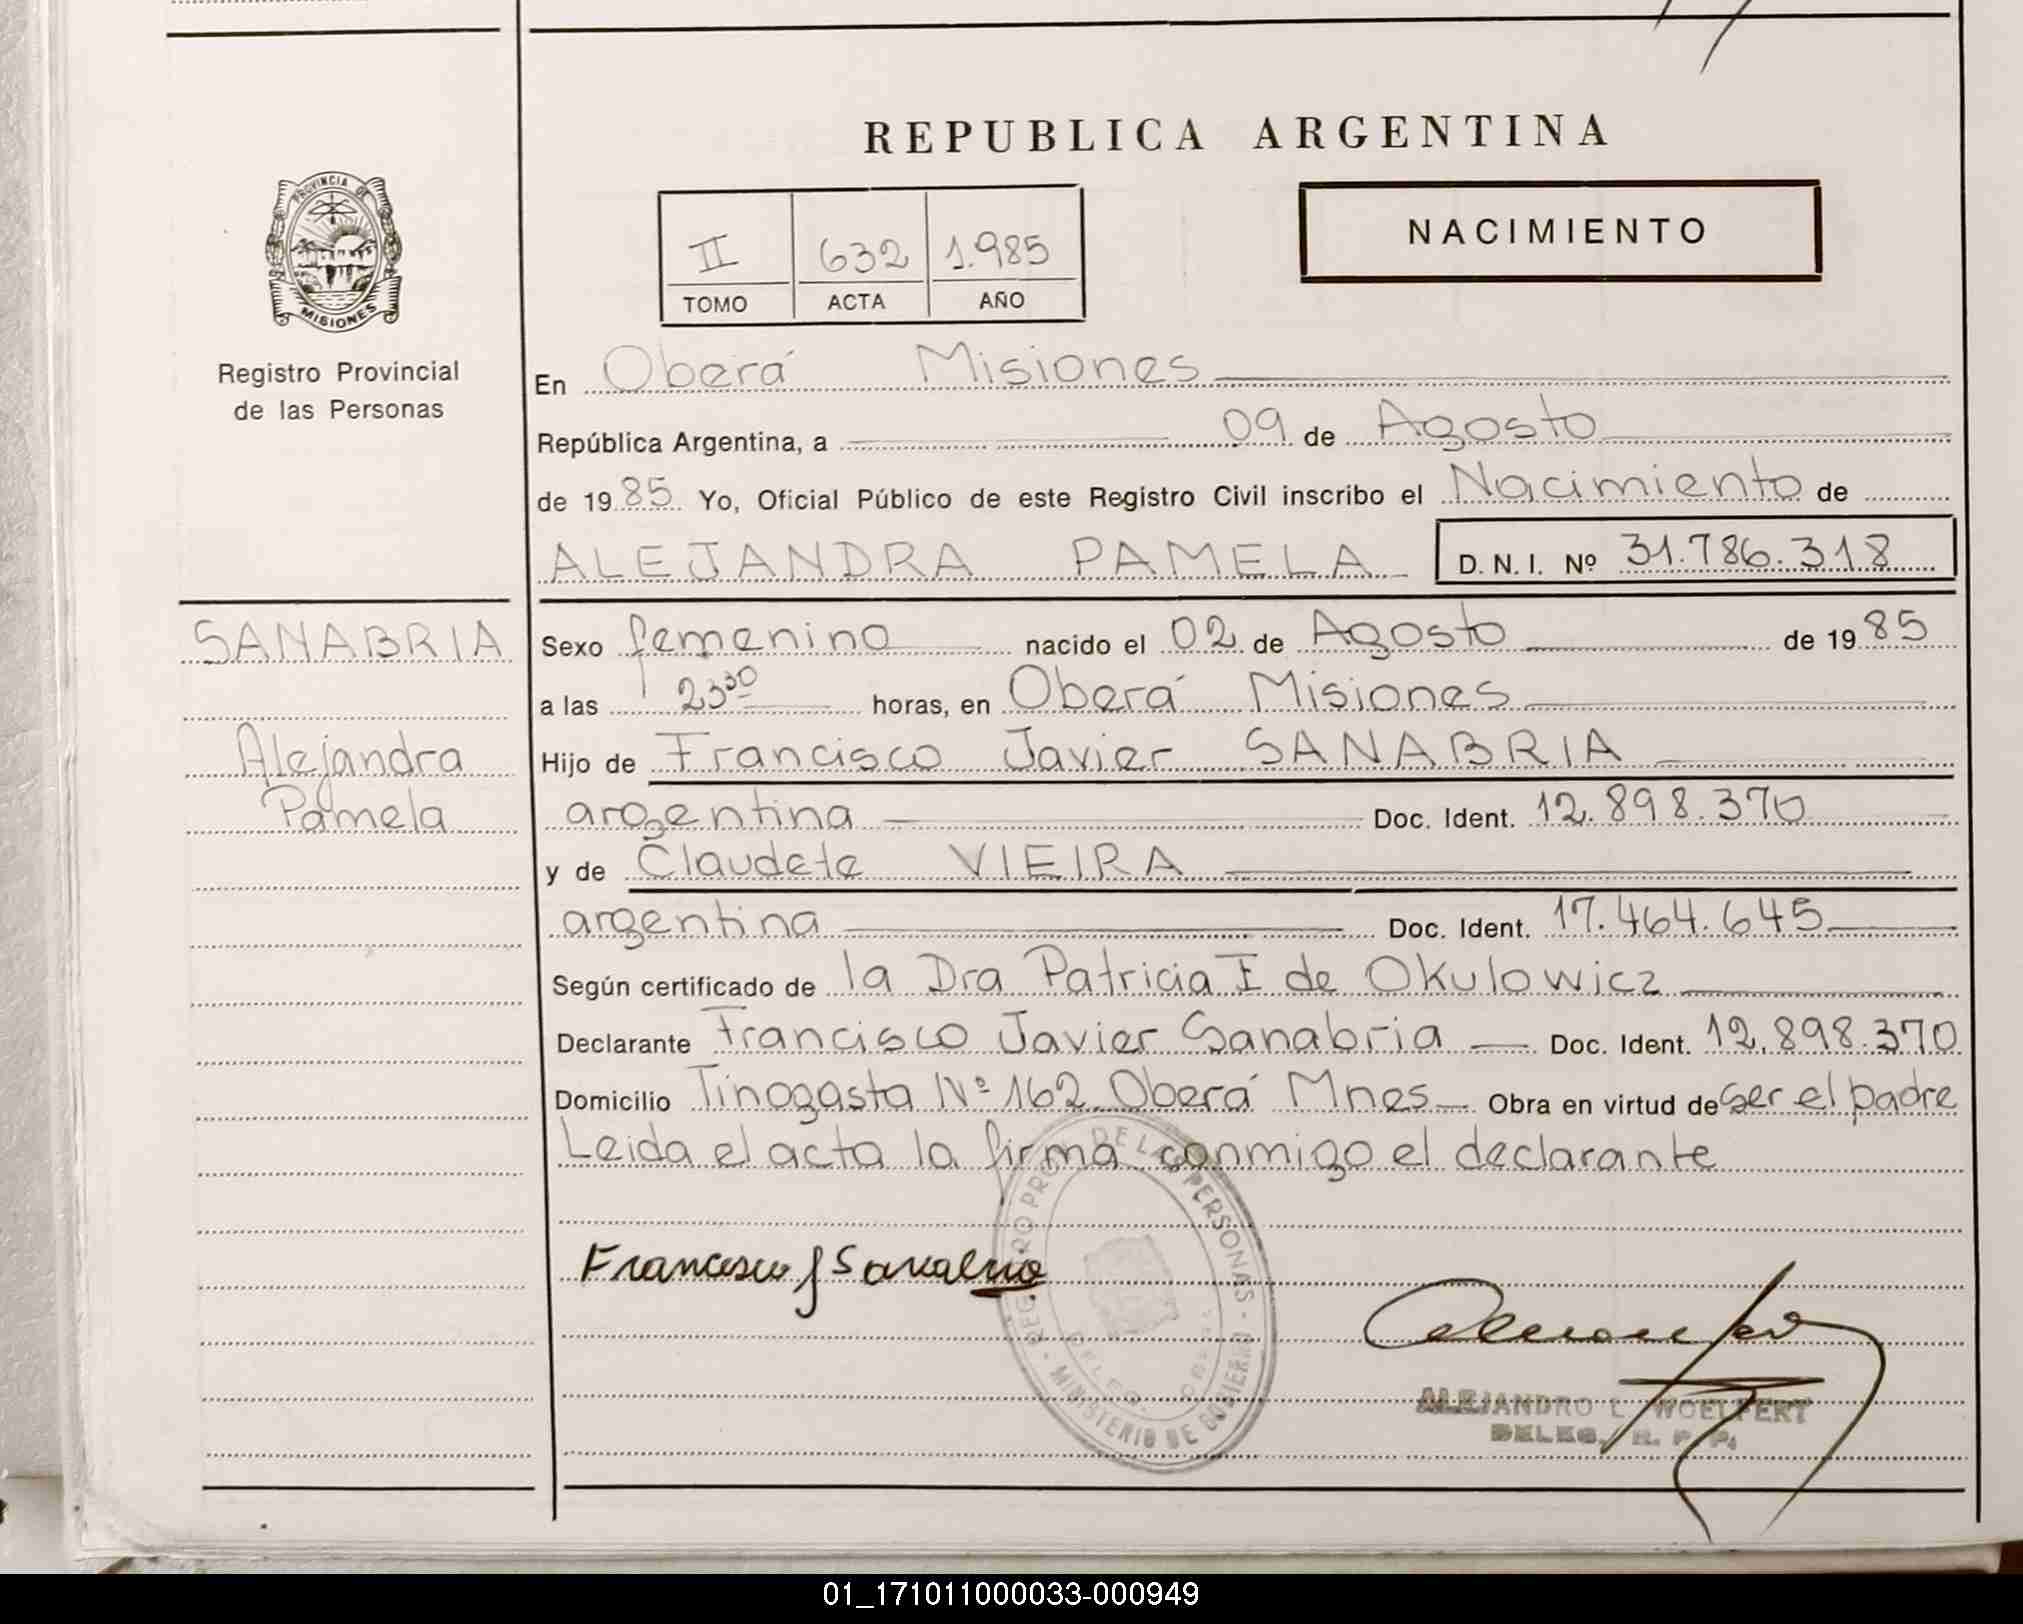 REPUBLICA ARGENTINA
PROVINCIA DE
MISIONES
Registro Provincial
de las Personas
II 632 1.985
TOMO ACTA AÑO
NACIMIENTO
En Oberá Misiones
República Argentina, a 09 de Agosto
de 1985 Yo, Oficial Público de este Registro Civil inscribo el Nacimiento de
ALEJANDRA PAMELA D. N. I. Nº 31.786.318
SANABRIA
Alejandra
Pamela
Sexo femenino nacido el 02 de Agosto de 1985
a las 23³⁰ horas, en Oberá Misiones
Hijo de Francisco Javier SANABRIA
argentina Doc. Ident. 12.898.370
y de Claudete VIEIRA
argentina Doc. Ident. 17.464.645
Según certificado de la Dra Patricia I de Okulowicz
Declarante Francisco Javier Sanabria Doc. Ident. 12.898.370
Domicilio Tinogasta Nº 162 Oberá Mnes Obra en virtud de ser el padre
Leida el acta la firma conmigo el declarante
Francisco J Sanabria
REGISTRO PROV. DE LAS PERSONAS - MINISTERIO DE GOBIERNO
ALEJANDRO L. WOELFERT
DELEG. R. P. P.
01_171011000033-000949